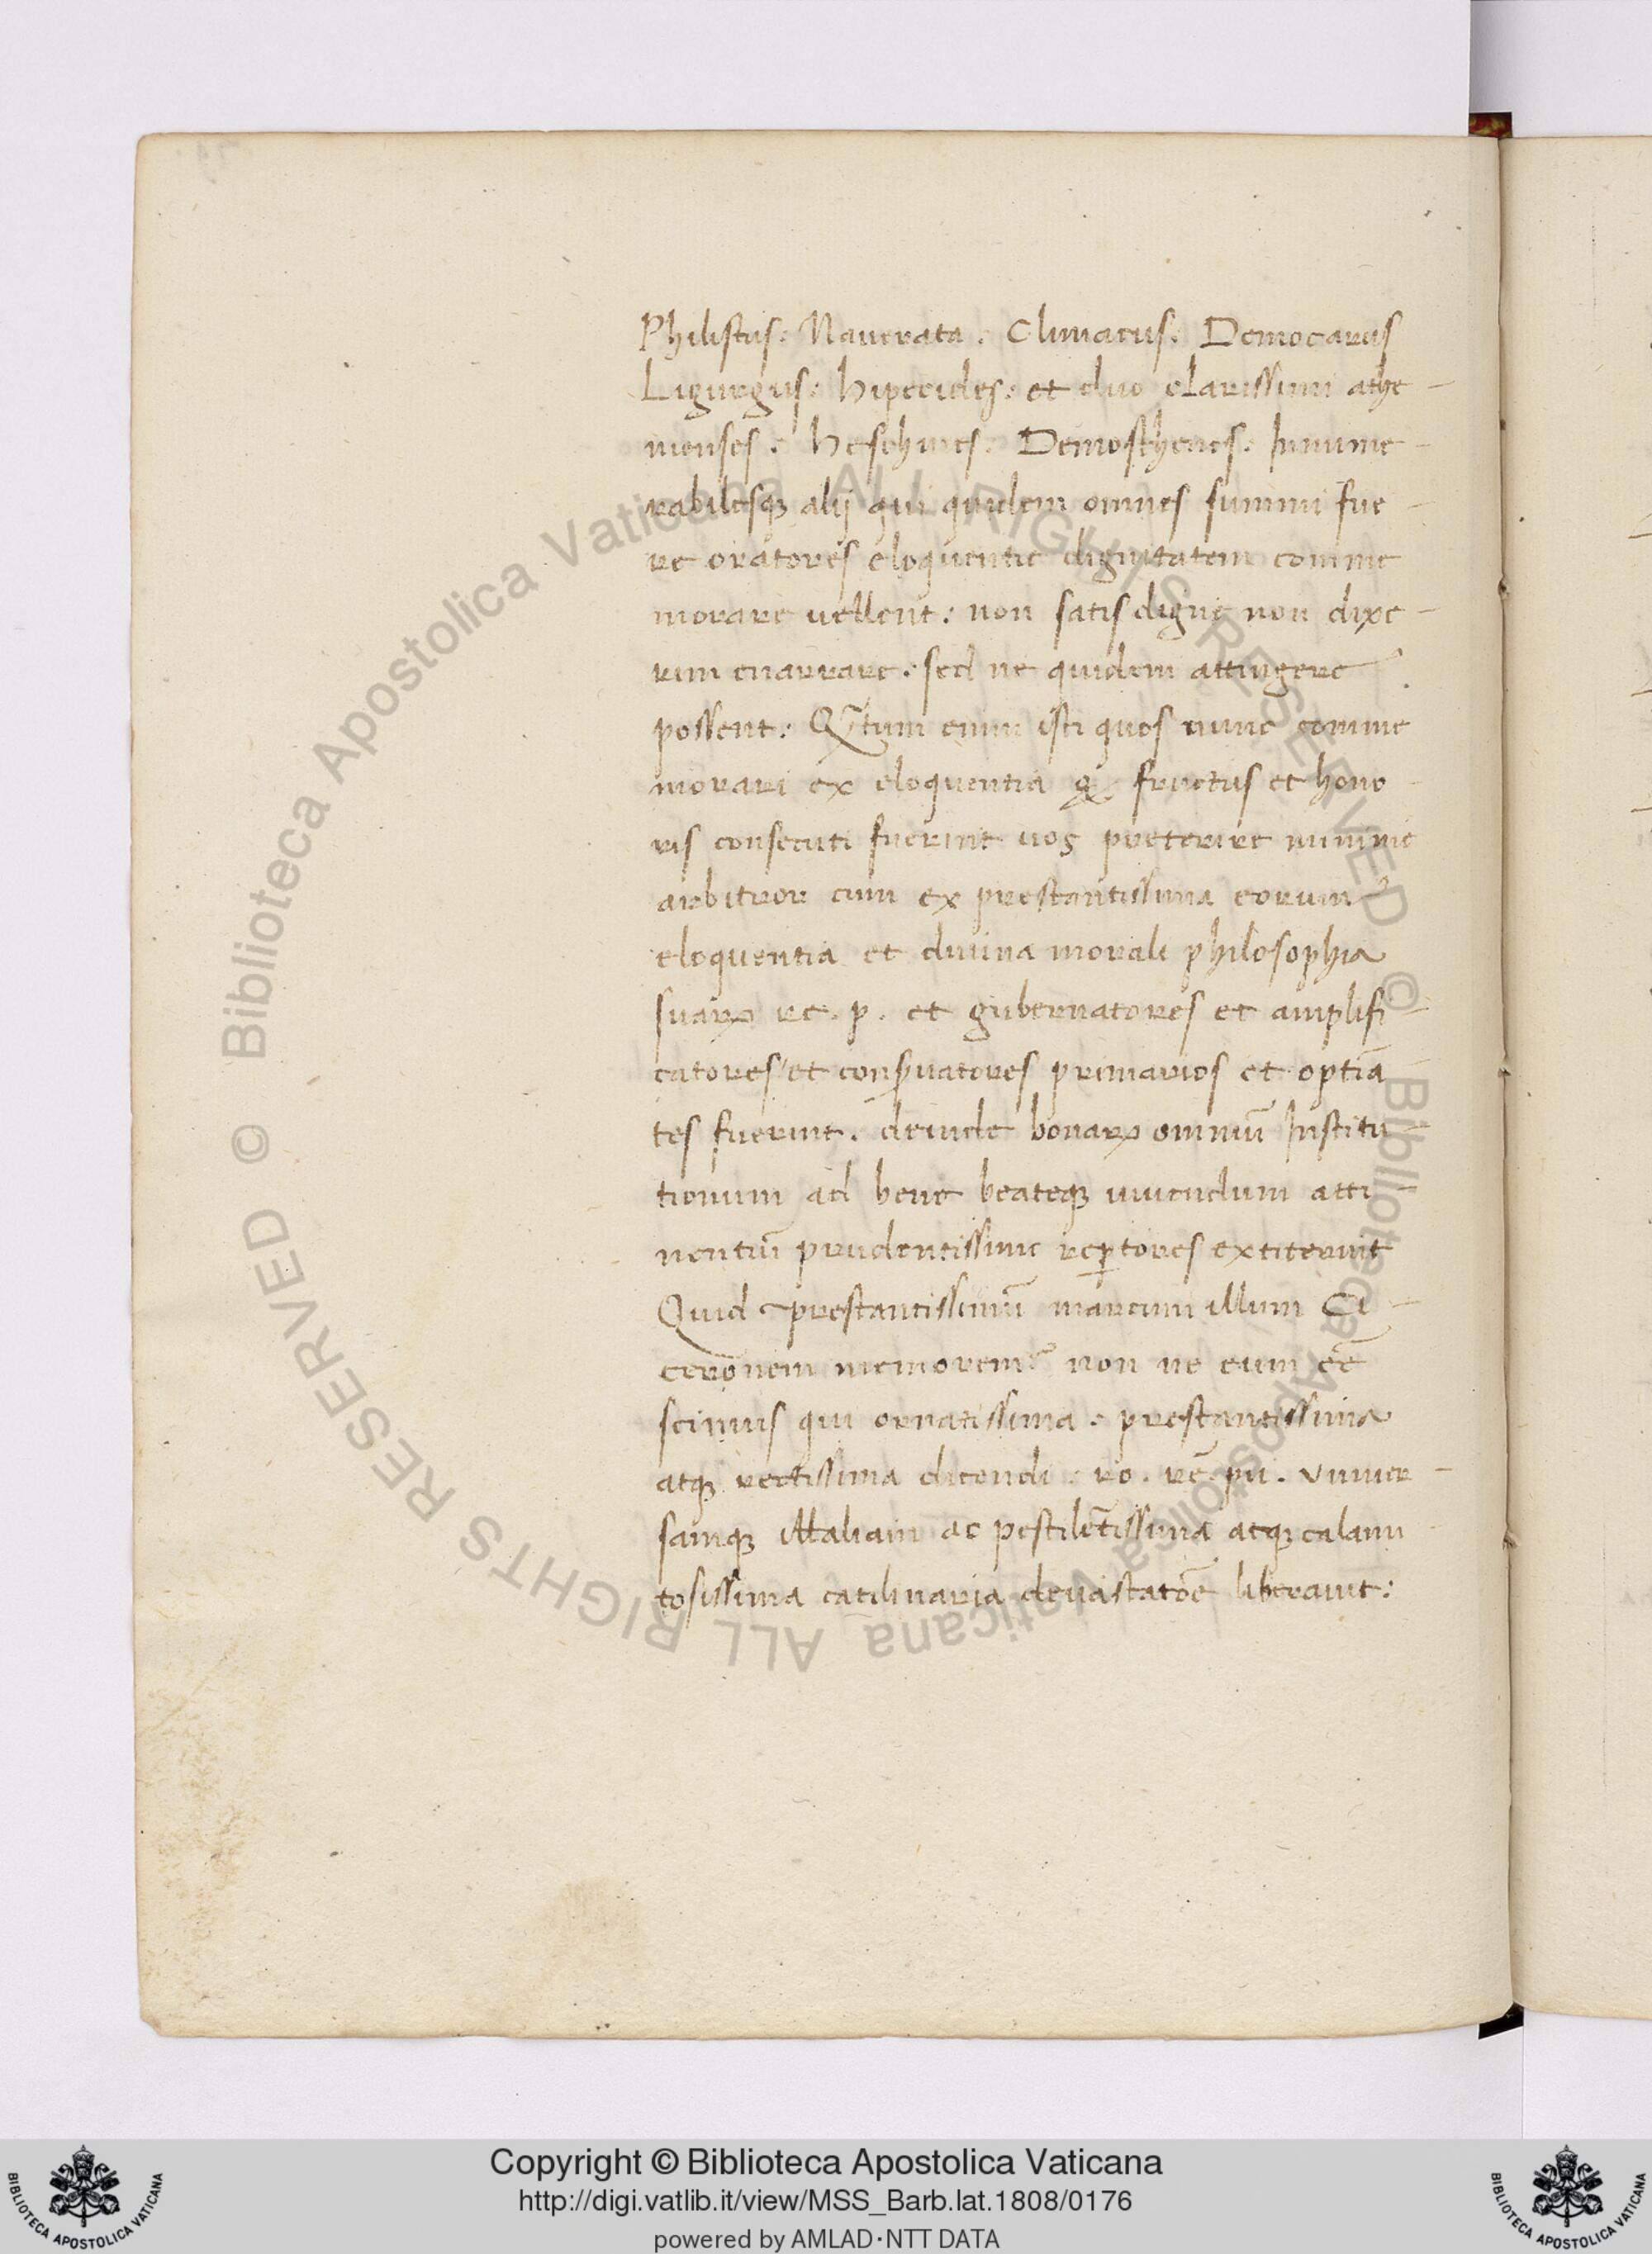 Philistus: Naucrata. Climacus. Democarus
Ligurgus: hiperides: et duo clarissimi athe-
nienses. heschines. Demosthenes. Innume-
rabilesqȝ alij qui quidem omnes summi fue-
re oratores eloquentie dignitatem comme
morare vellent: non satis digne non dixe-
rim enarrare. sed ne quidem attingere
possent: Q̃tum enim isti quos nunc comme
morari ex eloquentia fructus et hono-
ris consecuti fuerint uos preterire minime
arbitror cum ex prestantissima eorum
eloquentia et diuina morali philosophia
suarꝝ re. p. et gubernatores et amplifi-
catores et conseruatores primarios et optiã
tes fuerint. deinde bonarꝝ omniũ Institu-
tionum ad bene beateqȝ uiuendum atti-
nentiũ prudentissime reptores extiterint
Quid prestantissimũ marcum illum Ci-
ceronem memorem? non ne eum eẽ
scimus qui ornatissima. prestantissima
atqȝ rectissima dicendi. ro. rẽ. pu. vniuer-
samqȝ ittaliam ac pestilẽtissima atqȝ calami-
tosissima catilinaria deuastatõe liberauit:
© Biblioteca Apostolica Vaticana ALL RIGHTS RESERVED © Biblioteca Apostolica Vaticana ALL RIGHTS RESERVED
Copyright © Biblioteca Apostolica Vaticana
http://digi.vatlib.it/view/MSS_Barb.lat.1808/0176
powered by AMLAD·NTT DATA
BIBLIOTECA APOSTOLICA VATICANA
BIBLIOTECA APOSTOLICA VATICANA